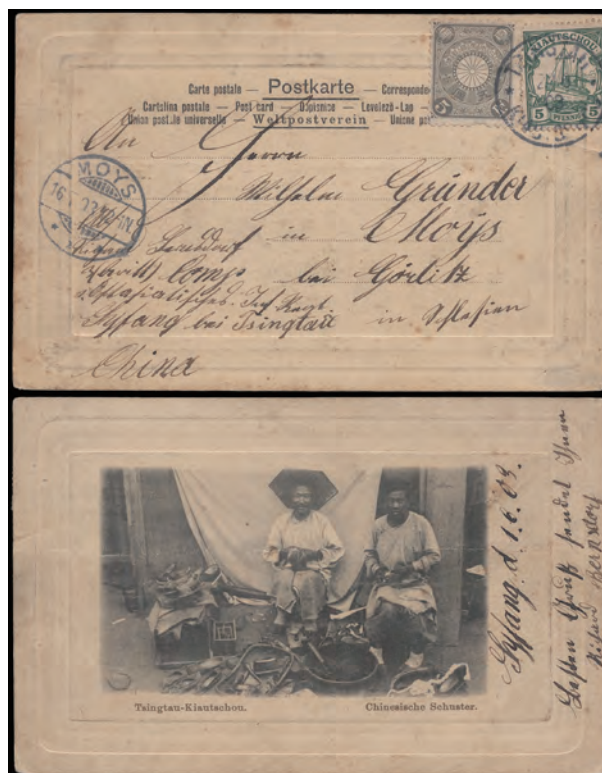 Carte postale — Postkarte — Corresponde
Cartolina postale — Post card — Dopisnice — Levelezö-Lap
Union postale universelle — Weltpostverein — Unione pos
5
KIAUTSCHOU
5 PFENNIG 5
An
Herrn
Wilhelm Gründer
in Moÿs
bei Görlitz
in Schlesien
MOYS
16
Comp
Ostasiatisches Inf. Regt
Syfang bei Tsingtau
China
Tsingtau-Kiautschou.
Chinesische Schuster.
Syfang d. 1.6.03.
Besten Gruß sendet Ihnen
Richard Berndorf